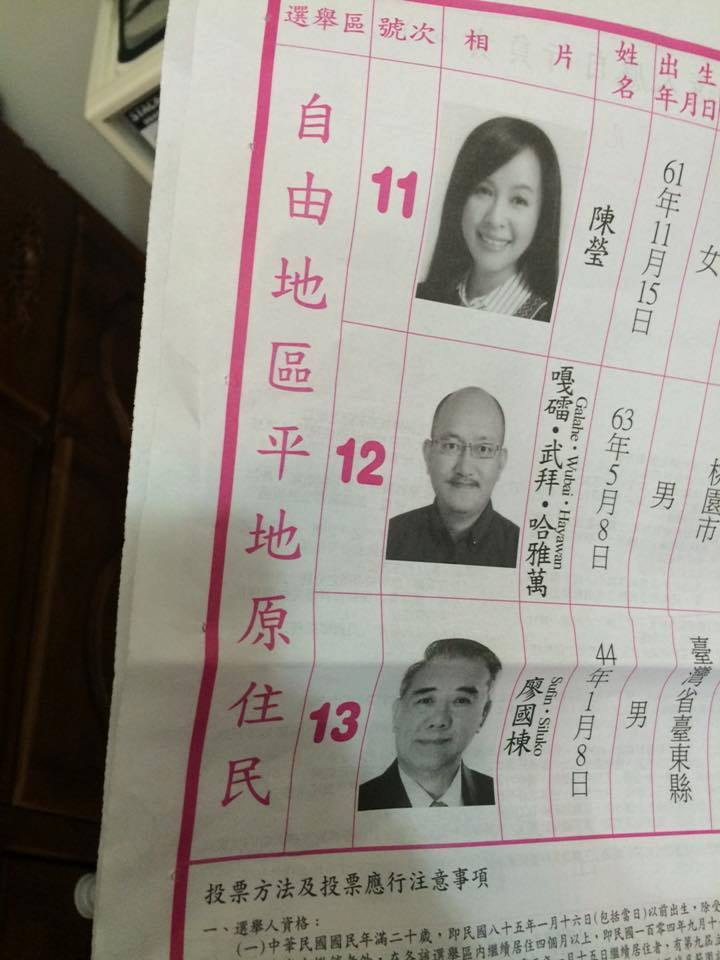 選舉區
號次
相片
姓名
出生年月日
自由地區平地原住民
11
陳瑩
61年11月15日
女
12
嘎礌・武拜・哈雅萬
Galahe・Wubai・Hayawan
63年5月8日
男
桃園市
13
廖國棟
Sufin・Siluko
44年1月8日
男
臺灣省臺東縣
投票方法及投票應行注意事項
一、選舉人資格：
(一)中華民國國民年滿二十歲，即民國八十五年一月十六日(包括當日)以前出生，除受
在各該選舉區內繼續居住四個月上，即民國一百零四年九月十